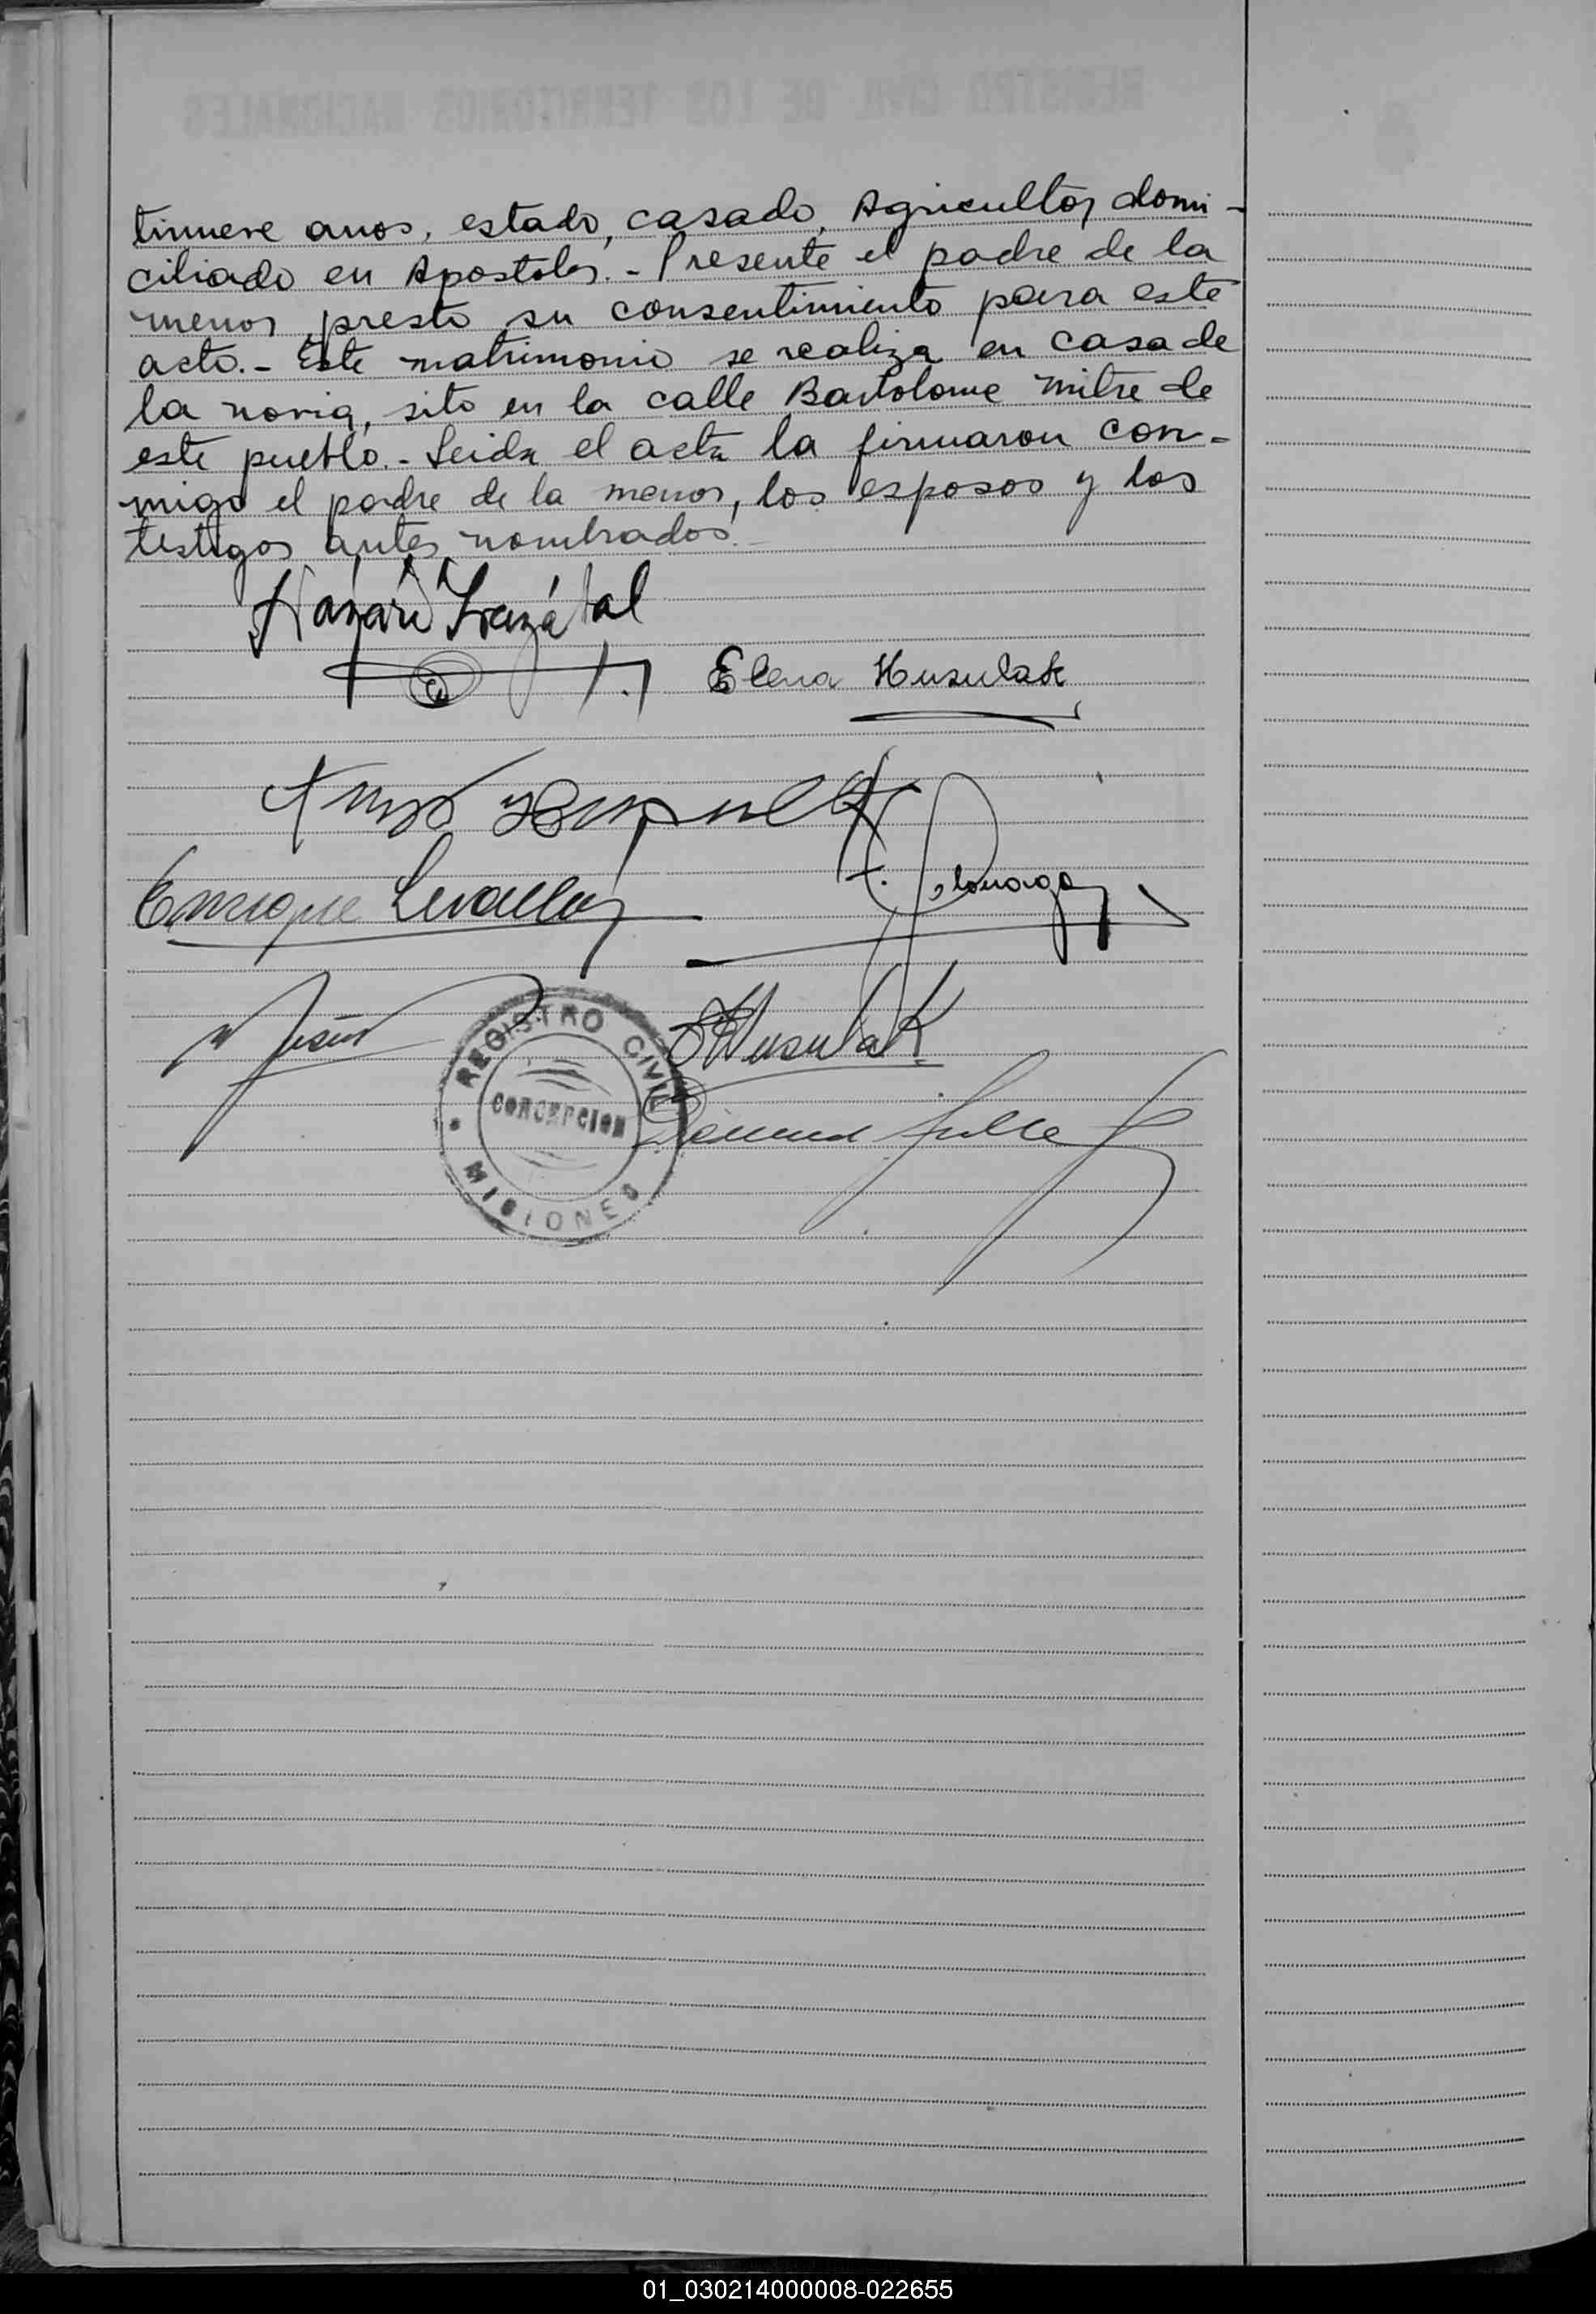 tinueve anos, estado, casado, Agricultor, domi-
ciliado en Apostoles.- Presente el padre de la
menor presto su consentimiento para este
acto.- Este matrimonio se realiza en casa de
la novia, sito en la calle Bartolome Mitre de
este pueblo.- Leida el acta la firmaron con-
migo el padre de la menor, los esposos y los
testigos antes nombrados.-
Elena Husulak
Enrique
Husulak
REGISTRO CIVIL
CONCEPCION
MISIONES
01_030214000008-022655